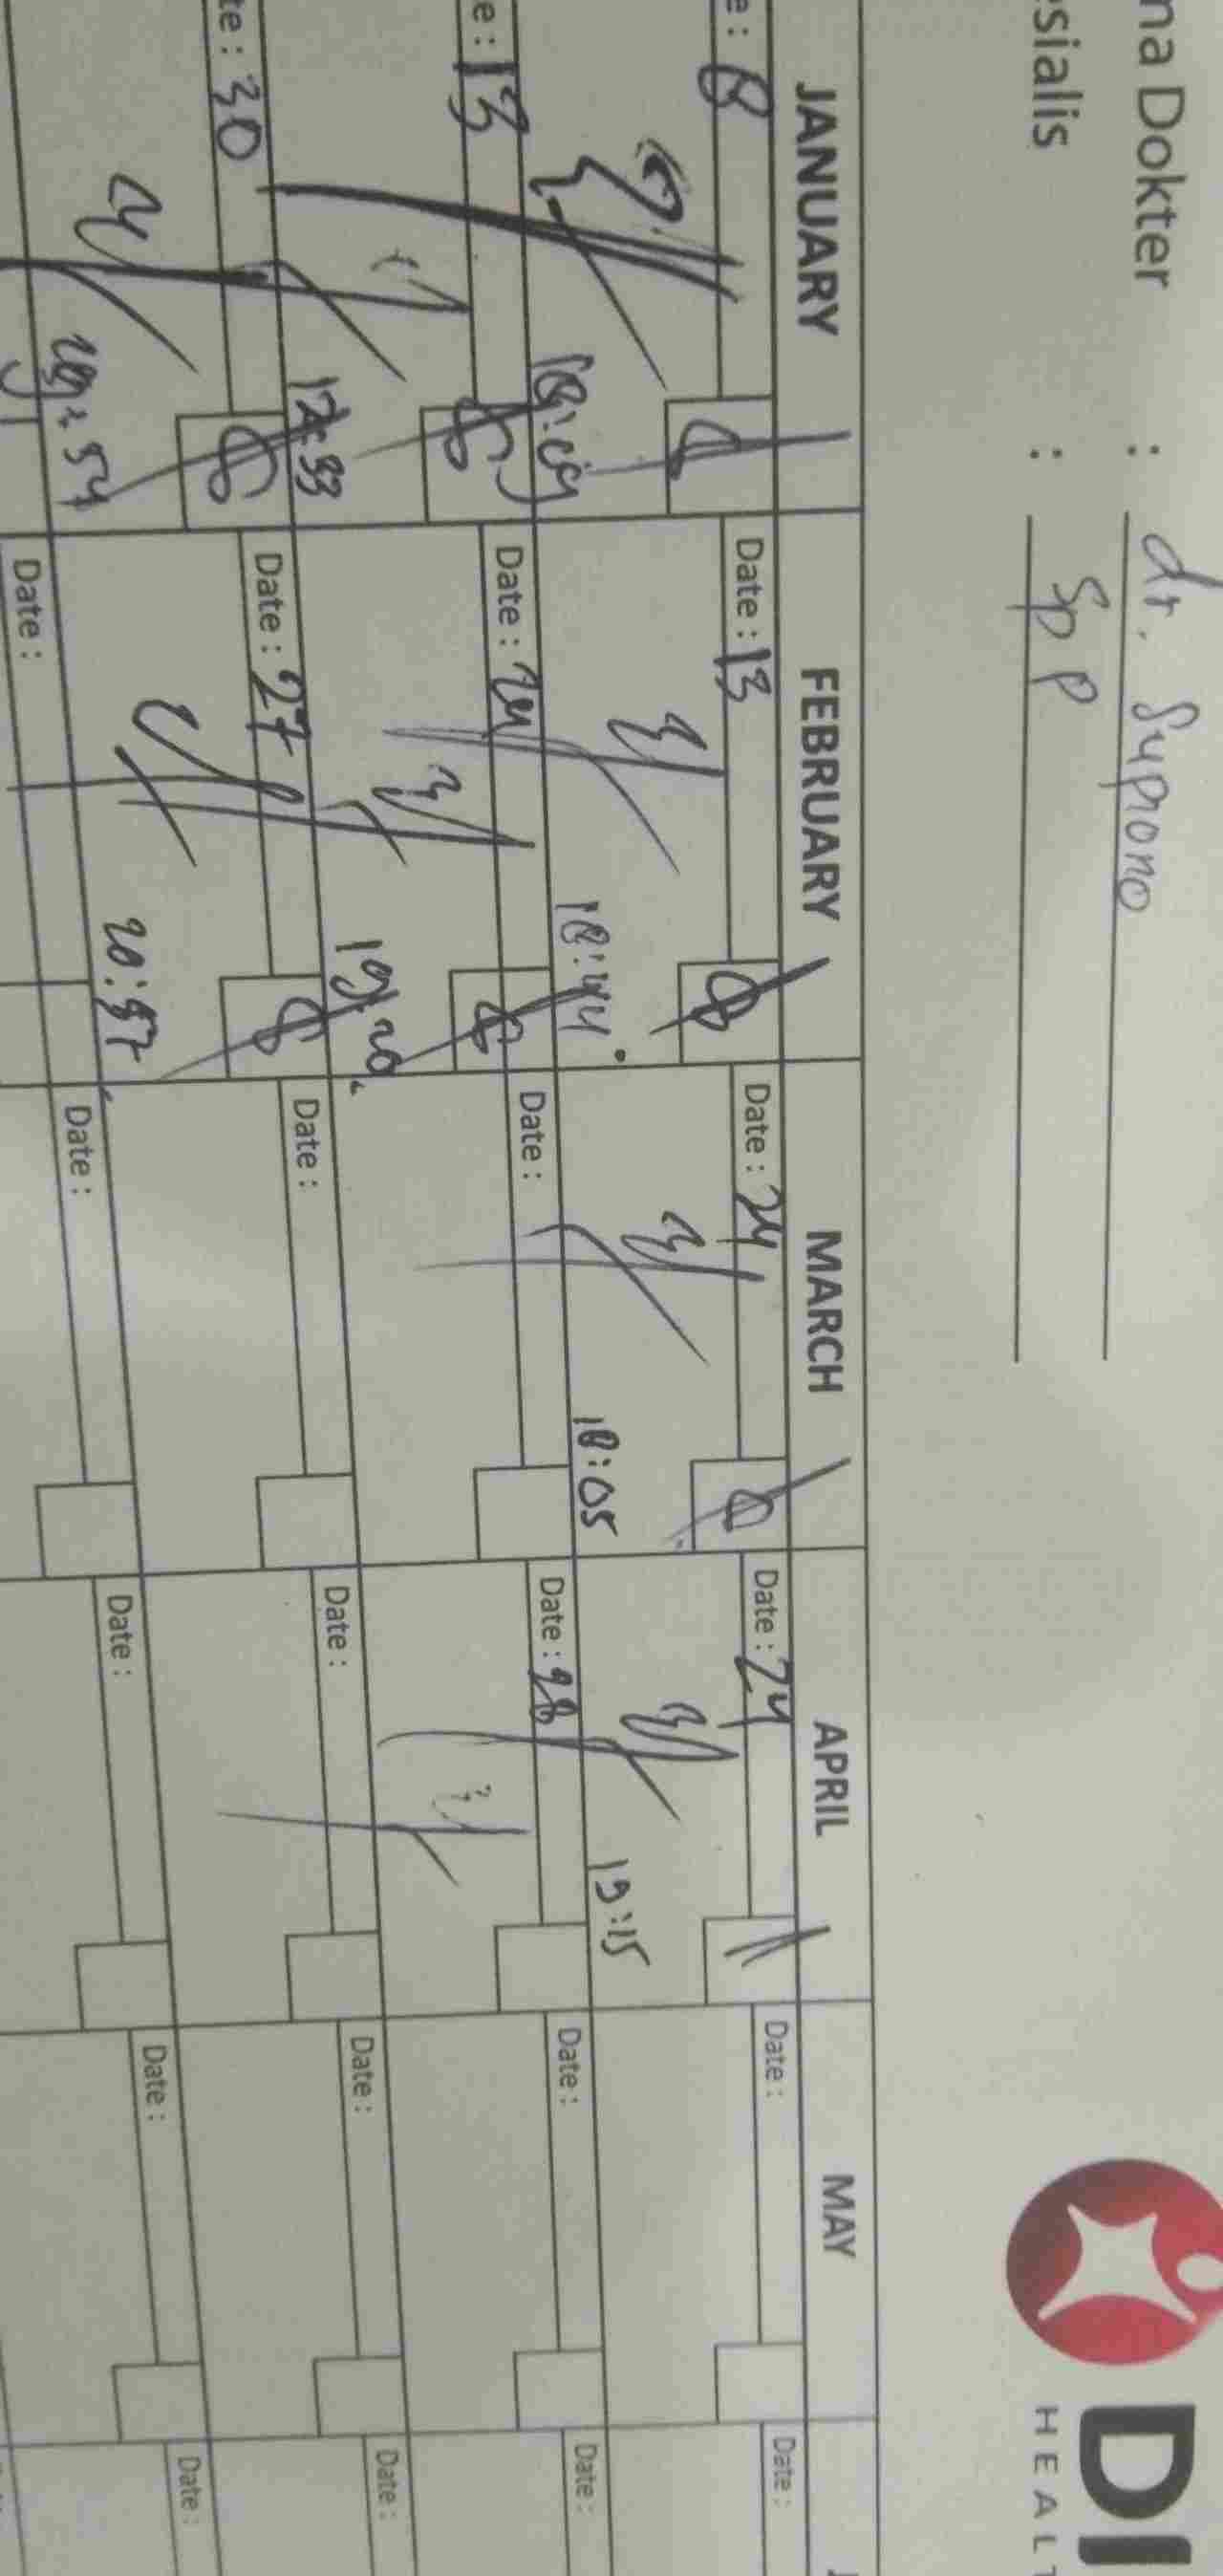 na Dokter : dr. Suprono
esialis : Sp P
DI
HEALT
JANUARY FEBRUARY MARCH APRIL MAY J
e : 8 Date : 13 Date : 24 Date : 24 Date : Date :
18:44 18:05 19:15
e : 13 Date : 24 Date : Date : 28 Date : Date :
19:20
te : 30 Date : 27 Date : Date : Date : Date :
20:57
Date : Date : Date : Date : Date :